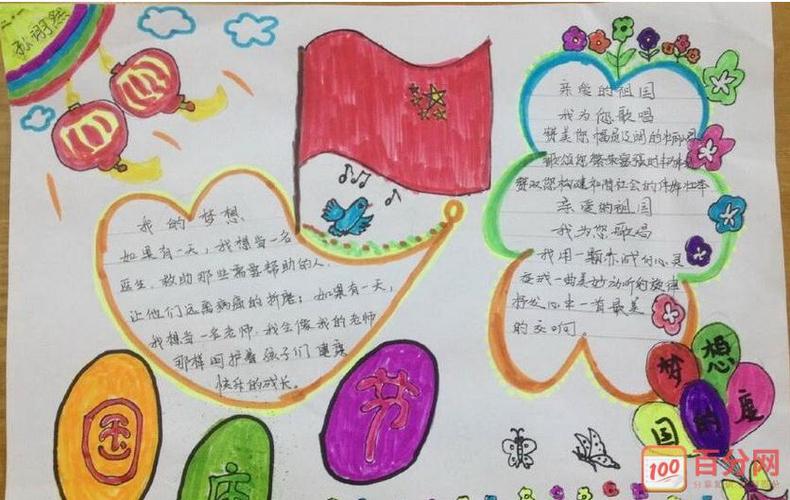 孙翊然
我的梦想
如果有一天，我想当一名
医生，救助那些需要帮助的人，
让他们远离病痛的折磨；如果有一天，
我想当一名老师，我会像我的老师
那样呵护着孩子们健康
快乐的成长。
亲爱的祖国
我为您歌唱
赞美您幅员辽阔的
歌颂您繁荣富强的
赞叹您构建和谐社会的伟健壮举
亲爱的祖国
我为您歌唱
我用一颗赤诚的心灵
在我一曲美妙动听的旋律
抒发心中一首最美
的交响。
国
庆
节
梦想
国的度
100
百分网